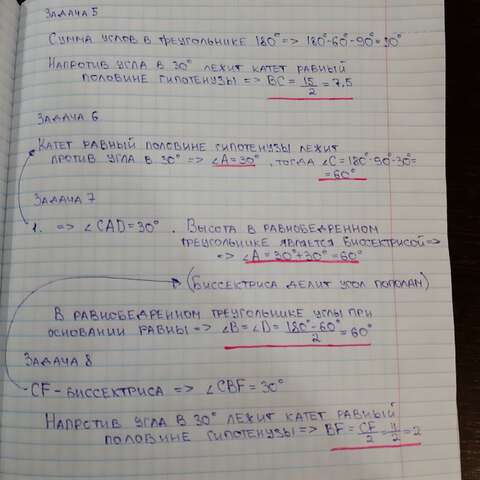 Задача 5
Сумма углов в треугольнике 180° => 180°-60°-90°=30°
Напротив угла в 30° лежит катет равный
половине гипотенузы => BC = 15/2 = 7,5
Задача 6
Катет равный половине гипотенузы лежит
против угла в 30° => ∠A=30°, тогда ∠C=180°-90°-30°=
=60°
Задача 7
1. => ∠CAD=30°. Высота в равнобедренном
треугольнике является биссектрисой =>
=> ∠A=30°+30°=60°
(Биссектриса делит угол пополам)
В равнобедренном треугольнике углы при
основании равны => ∠B=∠D= 180°-60°/2 =60°
Задача 8
CF-биссектриса => ∠CBF=30°
Напротив угла в 30° лежит катет равный
половине гипотенузы => BF= CF/2 = 4/2 =2